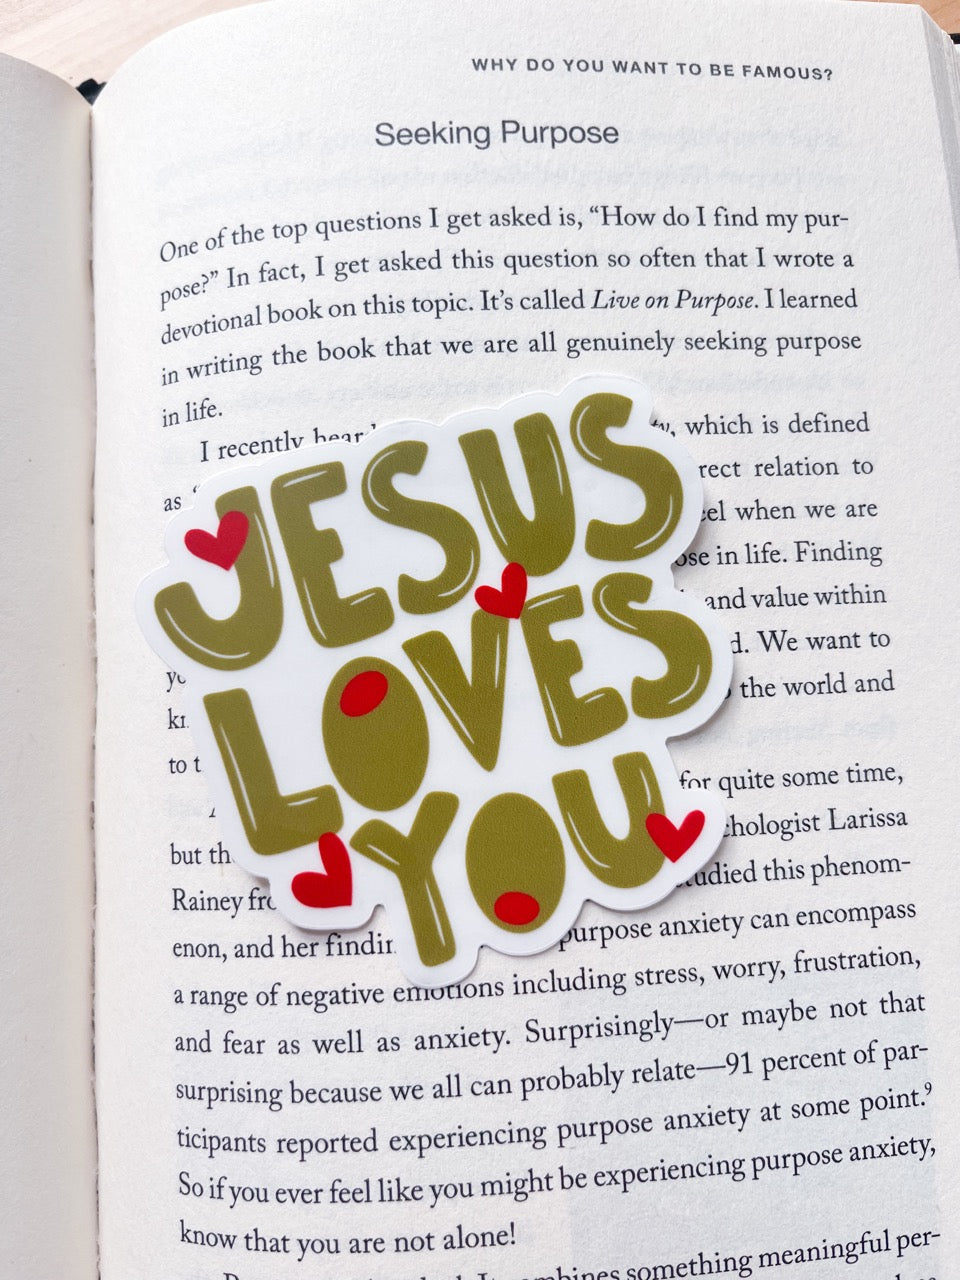 WHY DO YOU WANT TO BE FAMOUS?
Seeking Purpose
One of the top questions I get asked is, “How do I find my pur-
pose?” In fact, I get asked this question so often that I wrote a
devotional book on this topic. It’s called Live on Purpose. I learned
in writing the book that we are all genuinely seeking purpose
in life.
I recently
, which is defined
as
relation to
when we are
in life. Finding
and value within
We want to
the world and
to
for quite some time,
but
Larissa
Rainey
this phenom-
enon, and her
purpose anxiety can encompass
a range of negative emotions including stress, worry, frustration,
and fear as well as anxiety. Surprisingly—or maybe not that
surprising because we all can probably relate—91 percent of par-
ticipants reported experiencing purpose anxiety at some point.⁹
So if you ever feel like you might be experiencing purpose anxiety,
know that you are not alone!
something meaningful per-
JESUS
LOVES
YOU